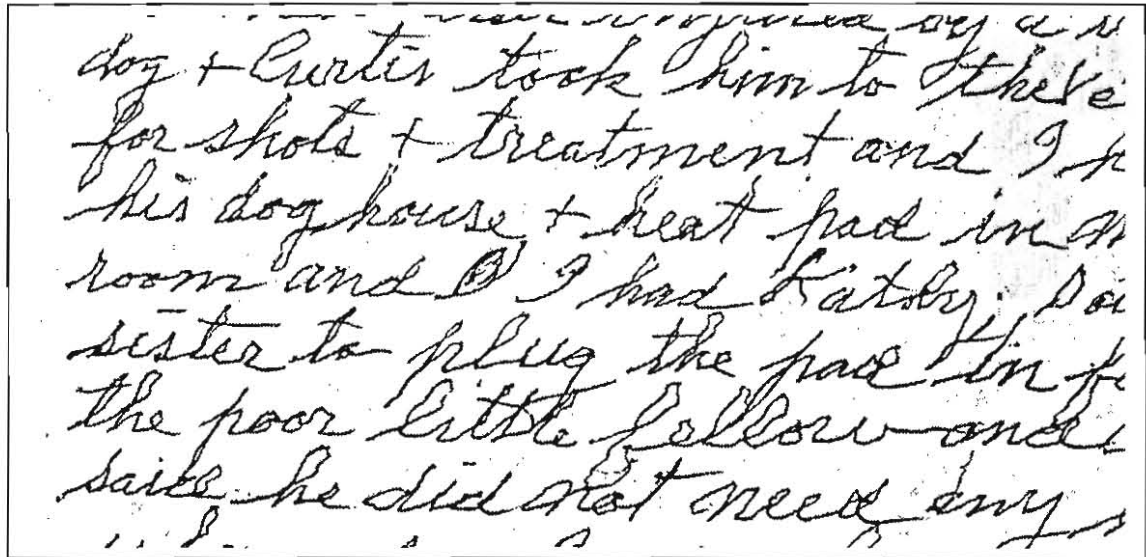 injured by a
dog + Curtis took him to the Ve
for shots + treatment and I
his dog house + heat pad in
room and I had Kathy,
sister to plug the pad in
the poor little fellow and
said he did not need any